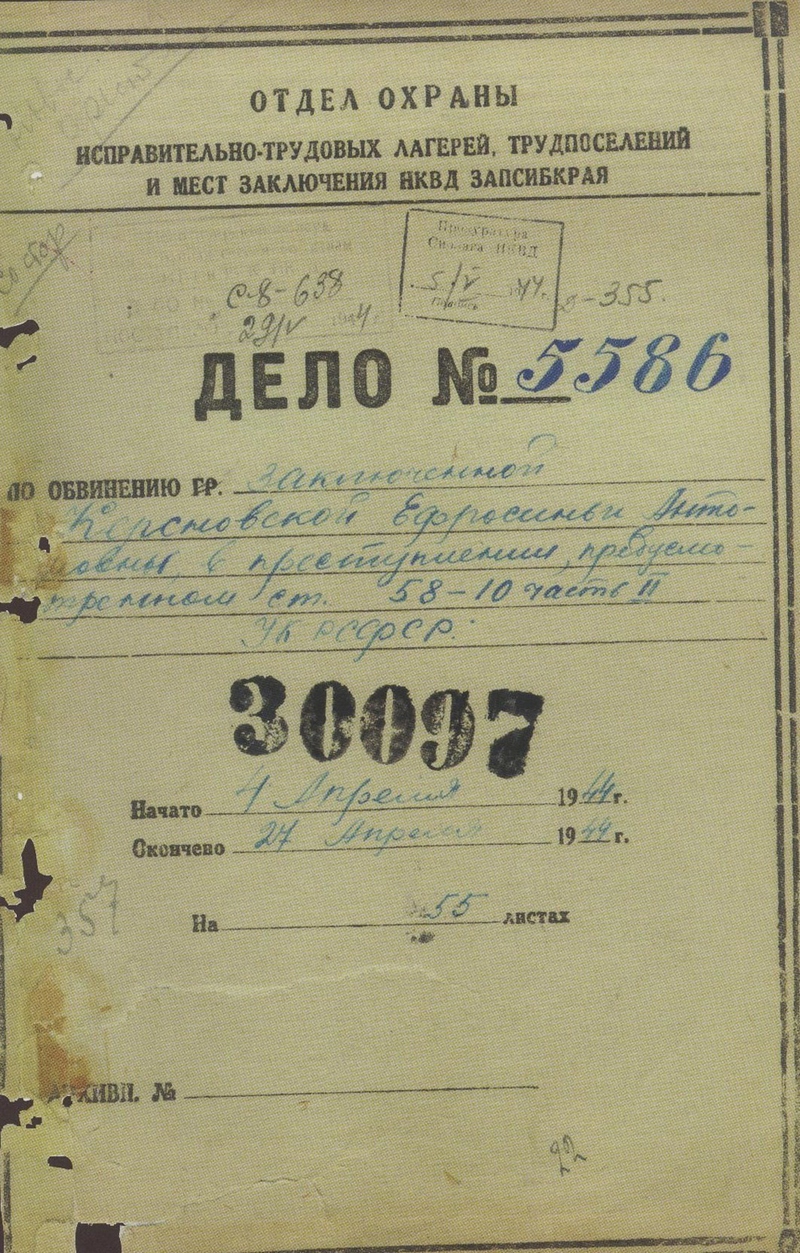 ОТДЕЛ ОХРАНЫ
ИСПРАВИТЕЛЬНО-ТРУДОВЫХ ЛАГЕРЕЙ, ТРУДПОСЕЛЕНИЙ
И МЕСТ ЗАКЛЮЧЕНИЯ НКВД ЗАПСИБКРАЯ
Прокуратура
Сиблага НКВД
5/V 44г.
С-8-638
29/IV 4
-355.
ДЕЛО № 5586
ПО ОБВИНЕНИЮ ГР. заключенной
Керсновской Ефросиньи Анто-
овны, в преступлении, предусмо-
тренном ст. 58-10 часть II
УК РСФСР.
30097
Начато 4 Апреля 1944г.
Окончено 27 Апреля 1944г.
На 55 листах
357
АРХИВН. №
22